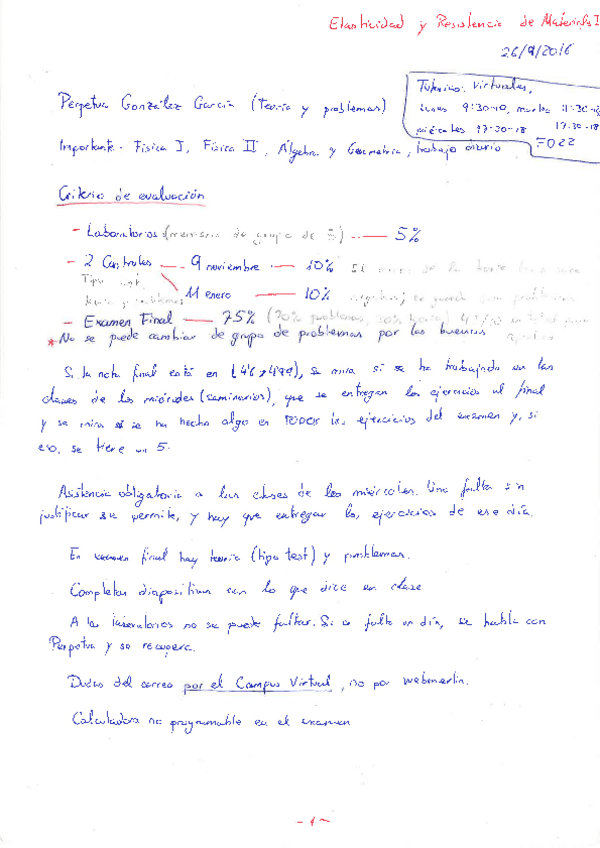 Elasticidad y Resistencia de Materiales I
26/9/2016
Tutorías: Virtuales,
lunes 9:30-10, martes 11:30-
miércoles 17:30-18 17:30-18
F022
Perpetua González García (teoría y problemas)
Importante: Física I, Física II, Álgebra y Geometría, trabajo diario
Criterio de evaluación
- Laboratorios (memoria de grupo de 5) — 5%
- 2 Controles — 9 noviembre — 10% Si
Tipo test
teoría y problemas
11 enero — 10%
- Examen Final — 75% (70% problemas, 30% teoría)
* No se puede cambiar de grupo de problemas por las buenas
aprobar
Si la nota final está en [4'6, 4'99], se mira si se ha trabajado en las
clases de los miércoles (seminarios), que se entregan los ejercicios al final
y se mira si se ha hecho algo en TODOS los ejercicios del examen y, si
eso, se tiene un 5.
Asistencia obligatoria a las clases de los miércoles. Una falta sin
justificar se permite, y hay que entregar los ejercicios de ese día.
En examen final hay teoría (tipo test) y problemas.
Completar diapositivas con lo que dice en clase
A los laboratorios no se puede faltar. Si se falta un día, se habla con
Perpetua y se recupera.
Dudas del correo por el Campus Virtual, no por webmail.
Calculadora no programable en el examen
- 1 -